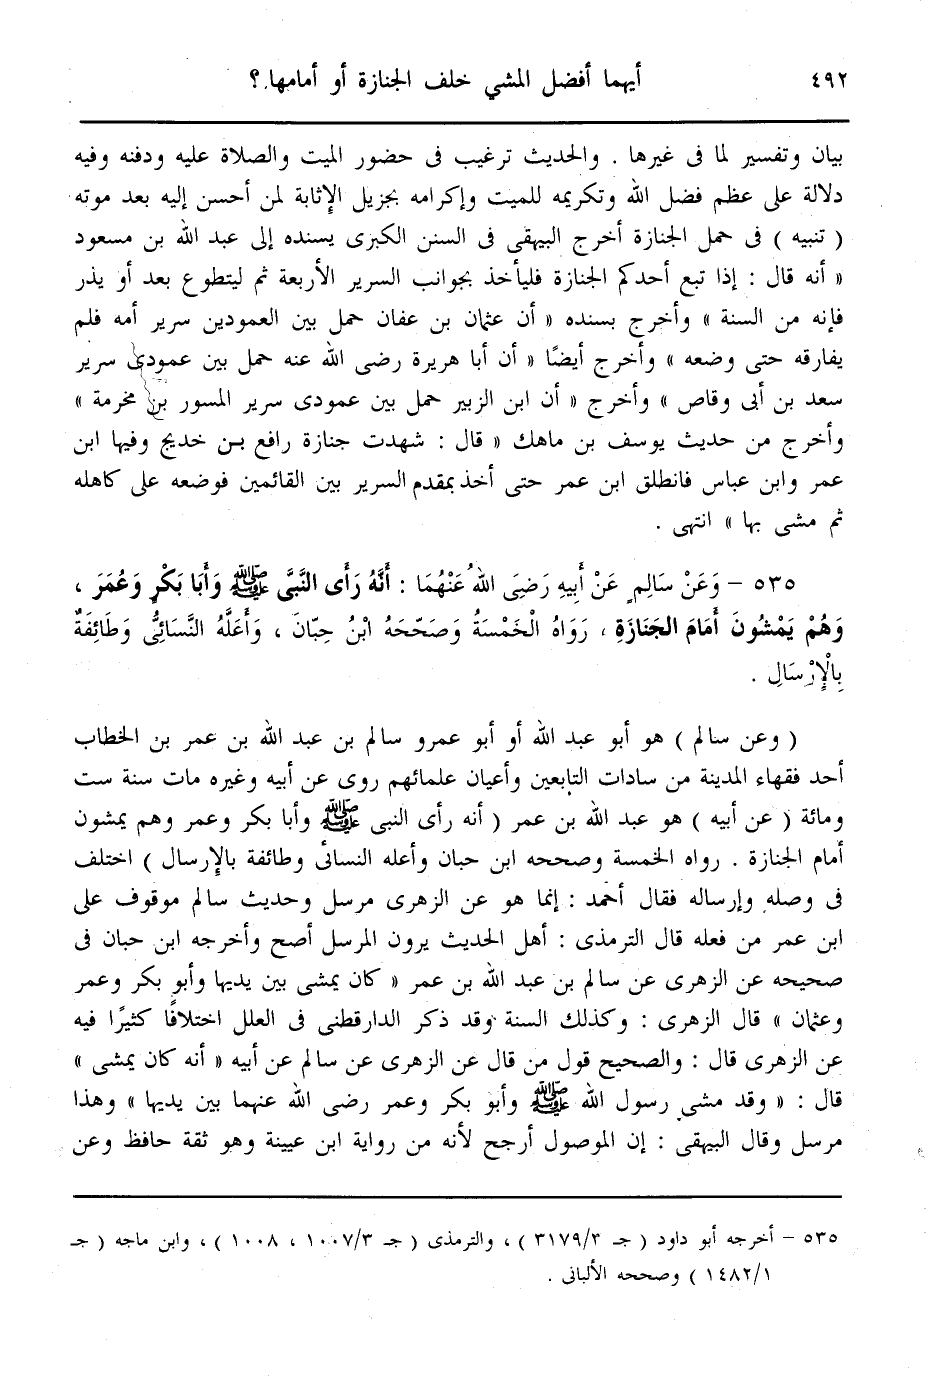 ٤٩٢ أيهما أفضل المشي خلف الجنازة أو أمامها.؟
بيان وتفسير لما فى غيرها . والحديث ترغيب فى حضور الميت والصلاة عليه ودفنه وفيه
دلالة على عظم فضل الله وتكريمه للميت وإكرامه بجزيل الإثابة لمن أحسن إليه بعد موته
( تنبيه ) فى حمل الجنازة أخرج البيهقى فى السنن الكبرى يسنده إلى عبد الله بن مسعود
« أنه قال : إذا تبع أحدكم الجنازة فليأخذ بجوانب السرير الأربعة ثم ليتطوع بعد أو يذر
فإنه من السنة » وأخرج بسنده « أن عثمان بن عفان حمل بين العمودين سرير أمه فلم
يفارقه حتى وضعه » وأخرج أيضًا « أن أبا هريرة رضى الله عنه حمل بين عمودى سرير
سعد بن أبى وقاص » وأخرج « أن ابن الزبير حمل بين عمودى سرير المسور بن مخرمة »
وأخرج من حديث يوسف بن ماهك « قال : شهدت جنازة رافع بن خديج وفيها ابن
عمر وابن عباس فانطلق ابن عمر حتى أخذ بمقدم السرير بين القائمين فوضعه على كاهله
ثم مشى بها » انتهى .
٥٣٥ – وَعَنْ سَالِمٍ عَنْ أَبِيهِ رَضِىَ اللهُ عَنْهُمَا : أَنَّهُ رَأَى النَّبِىَّ ﷺ وَأَبَا بَكْرٍ وَعُمَرَ ،
وَهُمْ يَمْشُونَ أَمَامَ الجَنَازَةِ ، رَوَاهُ الْخَمْسَةُ وَصَحّحَهُ ابْنُ حِبّانَ ، وَأَعَلَّهُ النَّسَائِىُّ وَطَائِفَةٌ
بِالْإِرْسَالِ .
( وعن سالم ) هو أبو عبد الله أو أبو عمرو سالم بن عبد الله بن عمر بن الخطاب
أحد فقهاء المدينة من سادات التابعين وأعيان علمائهم روى عن أبيه وغيره مات سنة ست
ومائة ( عن أبيه ) هو عبد الله بن عمر ( أنه رأى النبى ﷺ وأبا بكر وعمر وهم يمشون
أمام الجنازة . رواه الخمسة وصححه ابن حبان وأعله النسائى وطائفة بالإرسال ) اختلف
فى وصله وإرساله فقال أحمد : إنما هو عن الزهرى مرسل وحديث سالم موقوف على
ابن عمر من فعله قال الترمذى : أهل الحديث يرون المرسل أصح وأخرجه ابن حبان فى
صحيحه عن الزهرى عن سالم بن عبد الله بن عمر « كان يمشى بين يديها وأبو بكر وعمر
وعثمان » قال الزهرى : وكذلك السنة وقد ذكر الدارقطنى فى العلل اختلافًا كثيرًا فيه
عن الزهرى قال : والصحيح قول من قال عن الزهرى عن سالم عن أبيه « أنه كان يمشى »
قال : « وقد مشى رسول الله ﷺ وأبو بكر وعمر رضى الله عنهما بين يديها » وهذا
مرسل وقال البيهقى : إن الموصول أرجح لأنه من رواية ابن عيينة وهو ثقة حافظ وعن
٥٣٥ – أخرجه أبو داود ( جـ ٣١٧٩/٣ ) ، والترمذى ( جـ ١٠٠٧/٣ ، ١٠٠٨ ) ، وابن ماجه ( جـ
١٤٨٢/١ ) وصححه الألبانى .